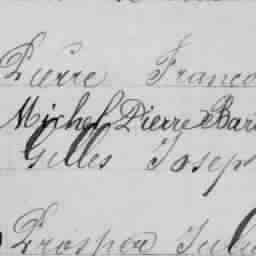 Pierre Franco
Michel Pierre Bar
Gilles Josep
Prosper Juli